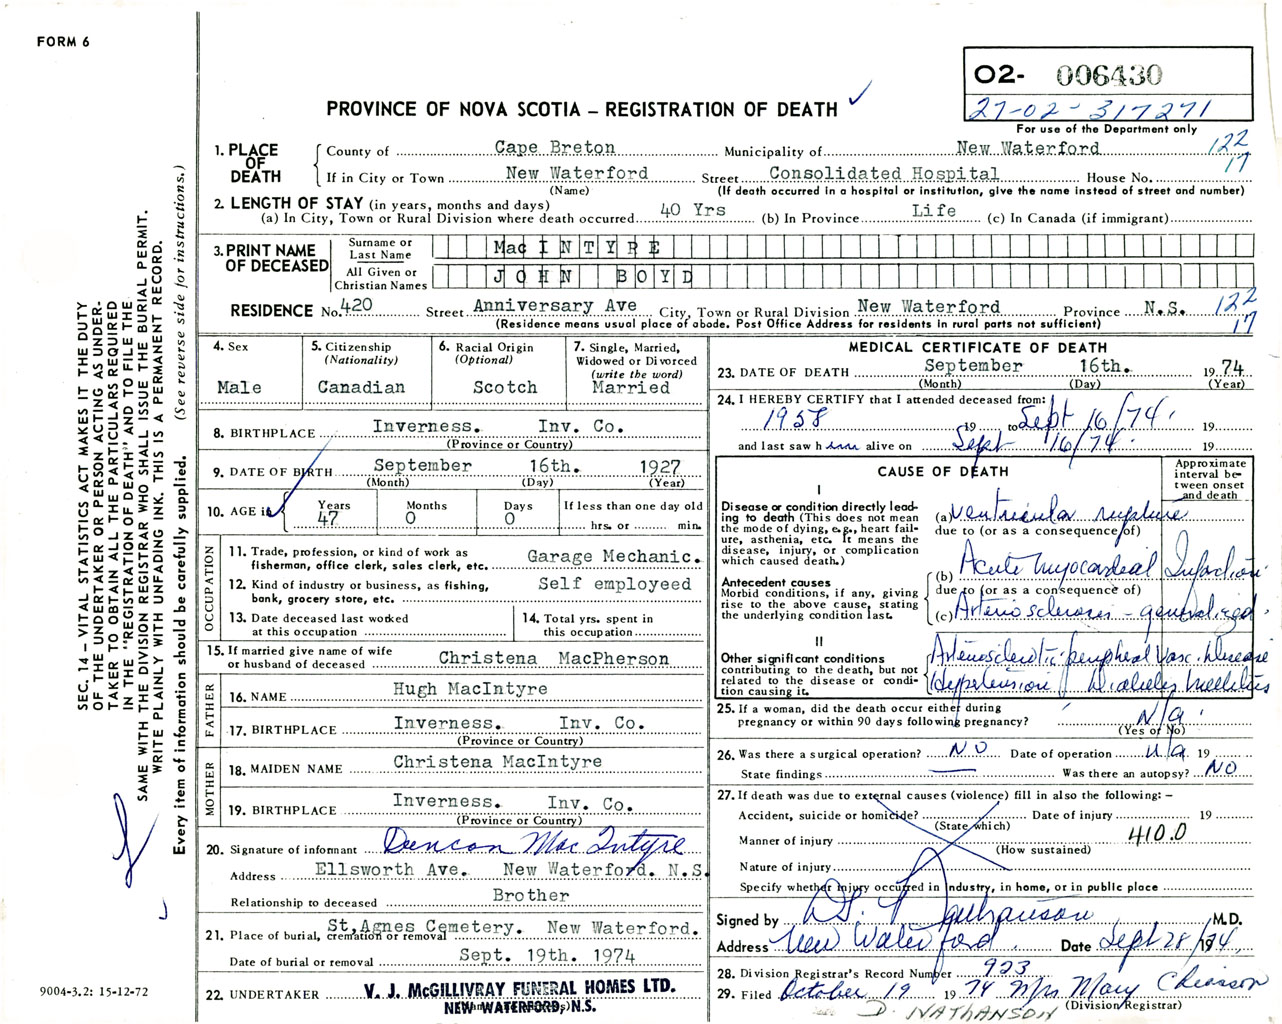 FORM 6
O2- 006430
27-02-317271
For use of the Department only
PROVINCE OF NOVA SCOTIA – REGISTRATION OF DEATH
1. PLACE OF DEATH
County of Cape Breton Municipality of New Waterford 122
If in City or Town New Waterford Street Consolidated Hospital House No. 17
(Name) (If death occurred in a hospital or institution, give the name instead of street and number)
2. LENGTH OF STAY (in years, months and days)
(a) In City, Town or Rural Division where death occurred 40 Yrs (b) In Province Life (c) In Canada (if immigrant)
3. PRINT NAME OF DECEASED
Surname or Last Name MacINTYRE
All Given or Christian Names JOHN BOYD
RESIDENCE No. 420 Street Anniversary Ave City, Town or Rural Division New Waterford Province N.S. 122
(Residence means usual place of abode. Post Office Address for residents in rural parts not sufficient) 17
4. Sex
Male
5. Citizenship
(Nationality)
Canadian
6. Racial Origin
(Optional)
Scotch
7. Single, Married, Widowed or Divorced
(write the word)
Married
8. BIRTHPLACE Inverness. Inv. Co.
(Province or Country)
9. DATE OF BIRTH September 16th. 1927
(Month) (Day) (Year)
10. AGE in
Years Months Days If less than one day old
47 0 0 hrs. or min.
OCCUPATION
11. Trade, profession, or kind of work as
fisherman, office clerk, sales clerk, etc. Garage Mechanic.
12. Kind of industry or business, as fishing,
bank, grocery store, etc. Self employeed
13. Date deceased last worked
at this occupation
14. Total yrs. spent in
this occupation
15. If married give name of wife
or husband of deceased Christena MacPherson
FATHER
16. NAME Hugh MacIntyre
17. BIRTHPLACE Inverness. Inv. Co.
(Province or Country)
MOTHER
18. MAIDEN NAME Christena MacIntyre
19. BIRTHPLACE Inverness. Inv. Co.
(Province or Country)
20. Signature of informant Duncan MacIntyre
Address Ellsworth Ave. New Waterford. N.S.
Relationship to deceased Brother
21. Place of burial, cremation or removal St,Agnes Cemetery. New Waterford.
Date of burial or removal Sept. 19th. 1974
22. UNDERTAKER V. J. McGILLIVRAY FUNERAL HOMES LTD.
NEW WATERFORD, N.S.
MEDICAL CERTIFICATE OF DEATH
23. DATE OF DEATH September 16th. 1974
(Month) (Day) (Year)
24. I HEREBY CERTIFY that I attended deceased from:
1958 19 to Sept 16/74. 19
and last saw him alive on Sept 16/74. 19
CAUSE OF DEATH
Approximate interval between onset and death
I
Disease or condition directly leading to death (This does not mean
the mode of dying, e.g., heart failure, asthenia, etc. It means the
disease, injury, or complication
which caused death.)
(a) Ventricular rupture
due to (or as a consequence of)
Antecedent causes
Morbid conditions, if any, giving
rise to the above cause, stating
the underlying condition last.
(b) Acute Myocardial Infarction
due to (or as a consequence of)
(c) Arteriosclerosis - generalized.
II
Other significant conditions
contributing to the death, but not
related to the disease or condition causing it.
Arteriosclerotic peripheral Vasc. Disease
Hypertension Diabetes Mellitus
25. If a woman, did the death occur either during
pregnancy or within 90 days following pregnancy? N/a.
(Yes or No)
26. Was there a surgical operation? NO Date of operation n/a 19
State findings — Was there an autopsy? NO
27. If death was due to external causes (violence) fill in also the following: –
Accident, suicide or homicide? Date of injury 19
(State which)
Manner of injury 410.0
(How sustained)
Nature of injury
Specify whether injury occurred in industry, in home, or in public place
Signed by Nathanson M.D.
Address New Waterford. Date Sept 28/74
28. Division Registrar's Record Number 923
29. Filed October 19 1974 Mrs Mary Chiasson
(Division Registrar)
D. NATHANSON
SEC. 14 – VITAL STATISTICS ACT MAKES IT THE DUTY
OF THE UNDERTAKER OR PERSON ACTING AS UNDER-
TAKER TO OBTAIN ALL THE PARTICULARS REQUIRED
IN THE "REGISTRATION OF DEATH" AND TO FILE THE
SAME WITH THE DIVISION REGISTRAR WHO SHALL ISSUE THE BURIAL PERMIT.
WRITE PLAINLY WITH UNFADING INK. THIS IS A PERMANENT RECORD.
Every item of information should be carefully supplied. (See reverse side for instructions.)
9004-3.2: 15-12-72